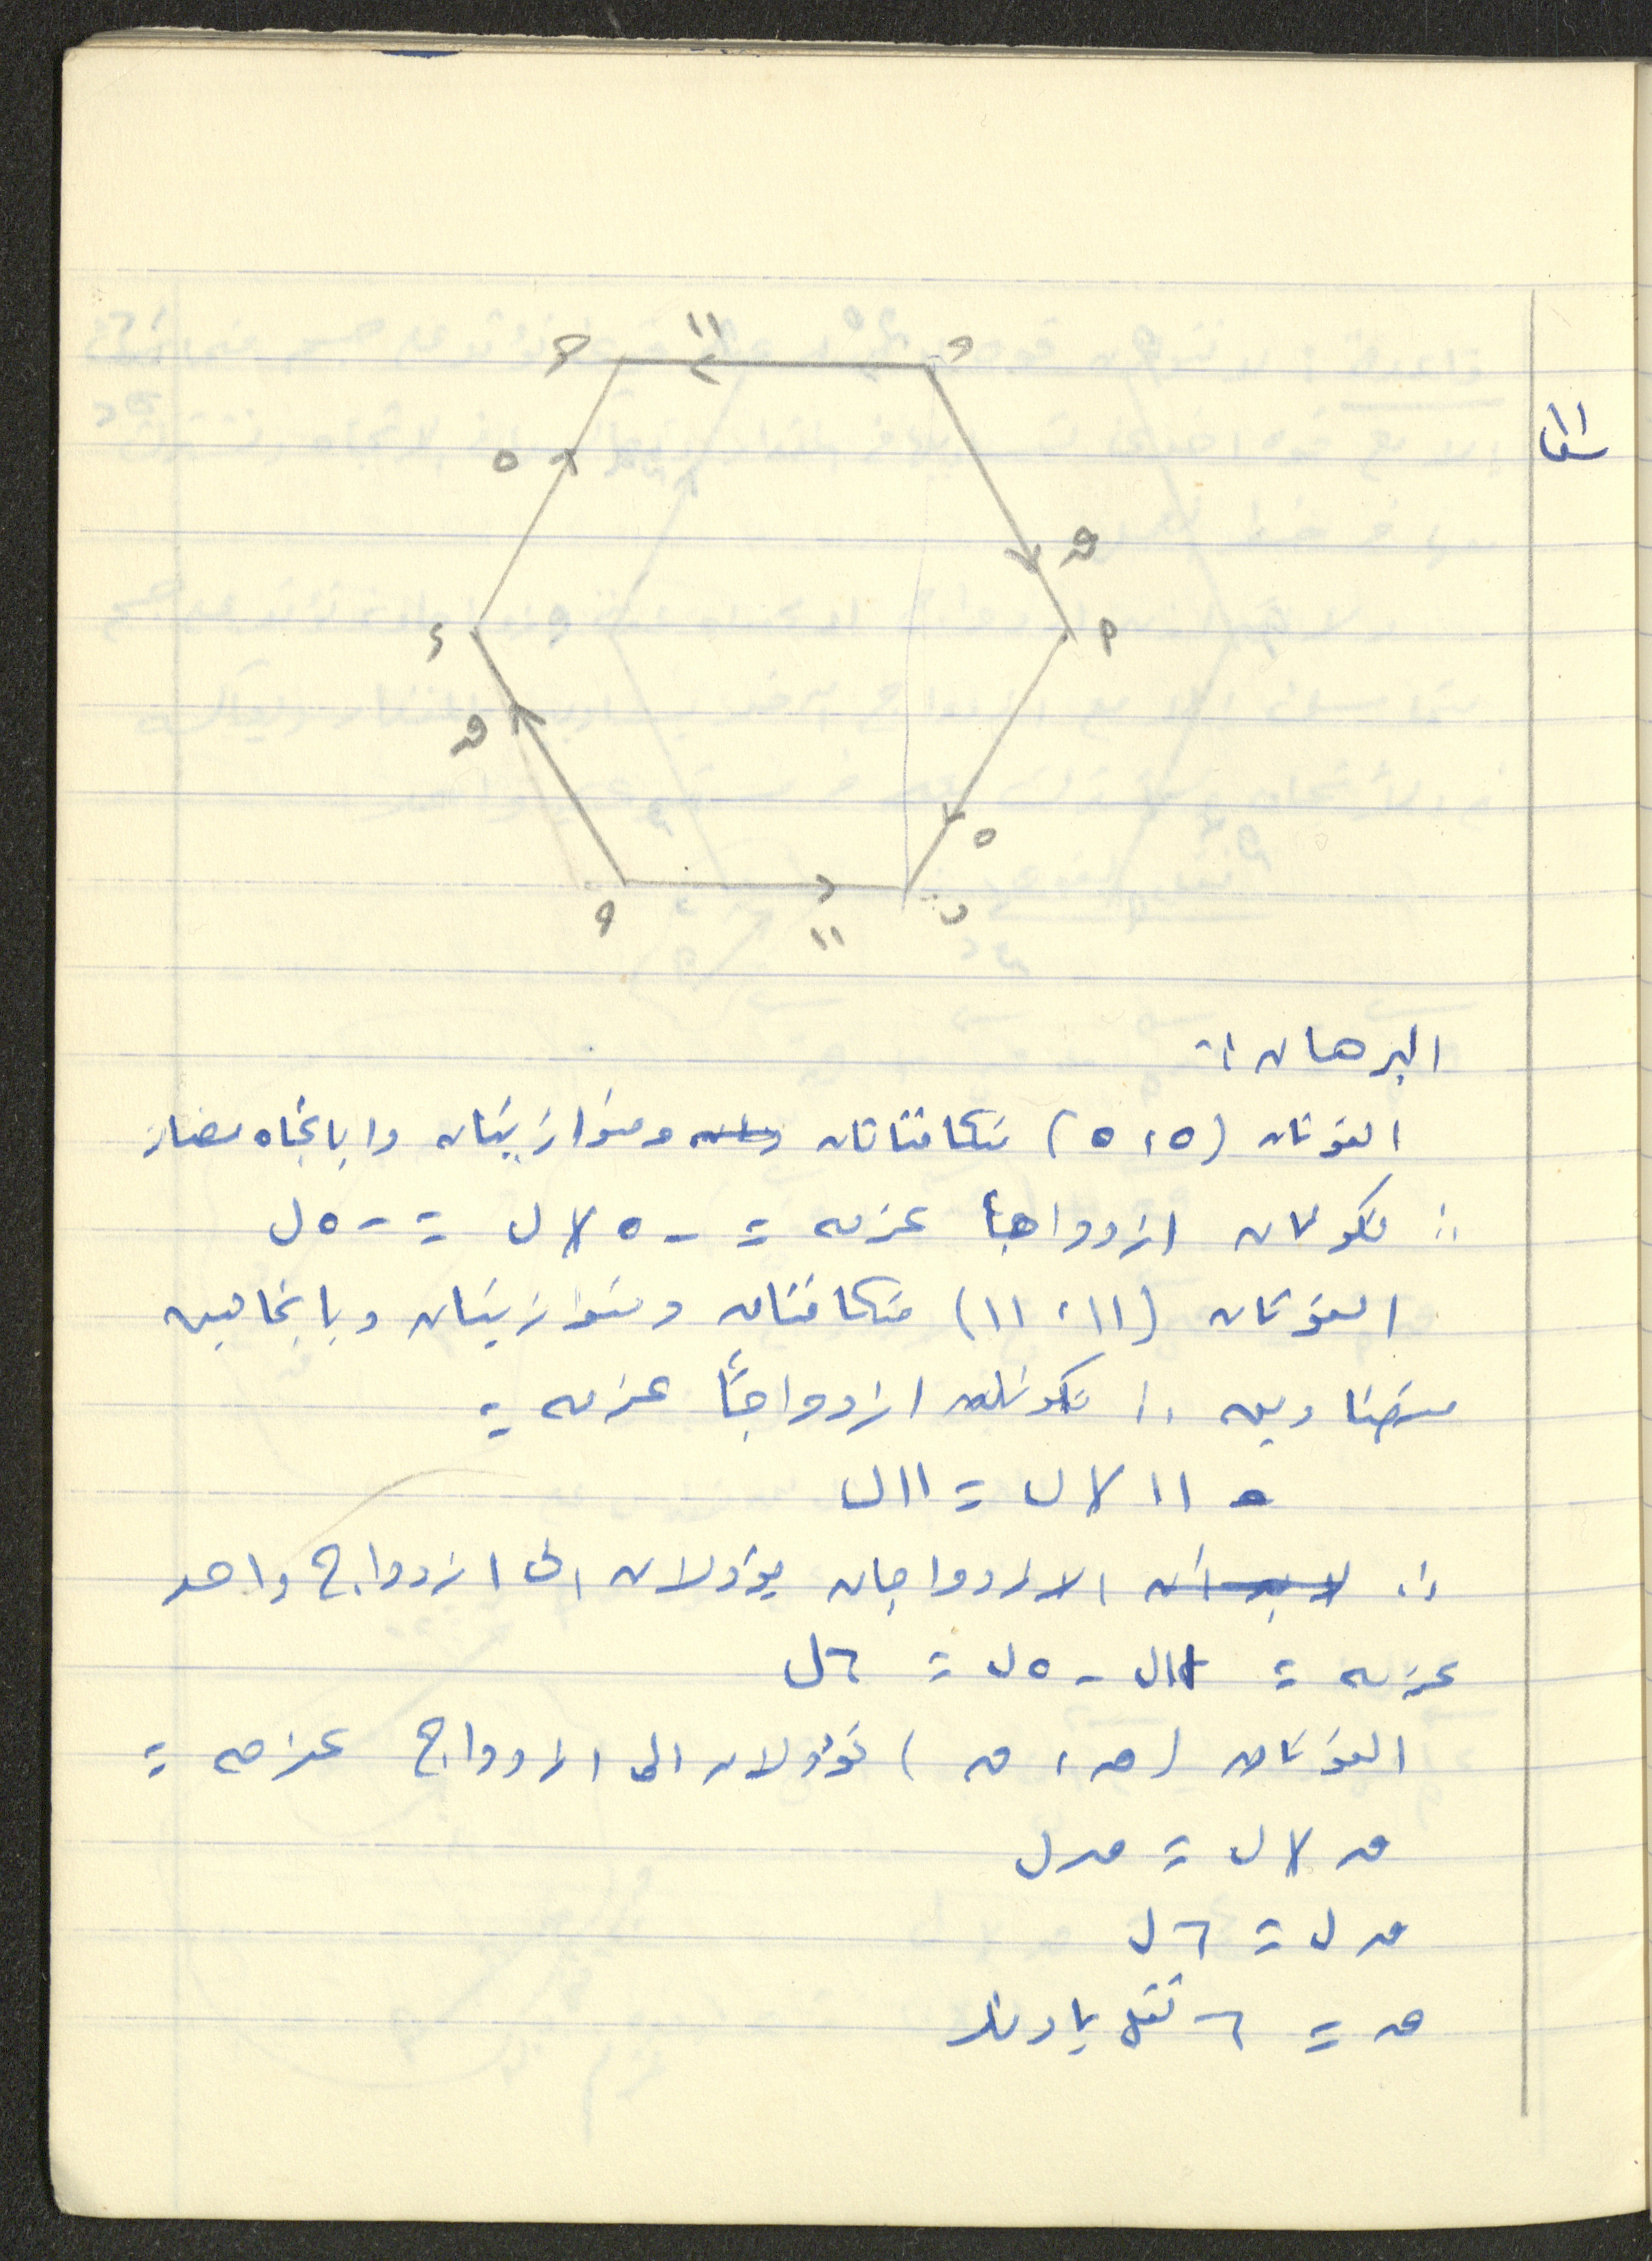 س١١
١١
هـ
و
٥
ق
م
ء
ق
٥
ب
١١
البرهان :-
القوتان (٥، ٥) متكافئتان ومتوازيتان وباتجاه مضاد
∴ تكونان ازدواجاً عزمه = - ٥ × ل = - ٥ ل
القوتان (١١، ١١) متكافئتان ومتوازيتان وباتجاهين
متضادين ∴ تكونان ازدواجاً عزمه =
١١ × ل = ١١ ل
∴ الازدواجان يؤولان الى ازدواج واحد
عزمه = ١١ل - ٥ل = ٦ل
القوتان (ق، ق) تؤولان الى ازدواج عزمه =
ق × ل = ق ل
ق ل = ٦ ل
ق = ٦ ثقل باوند